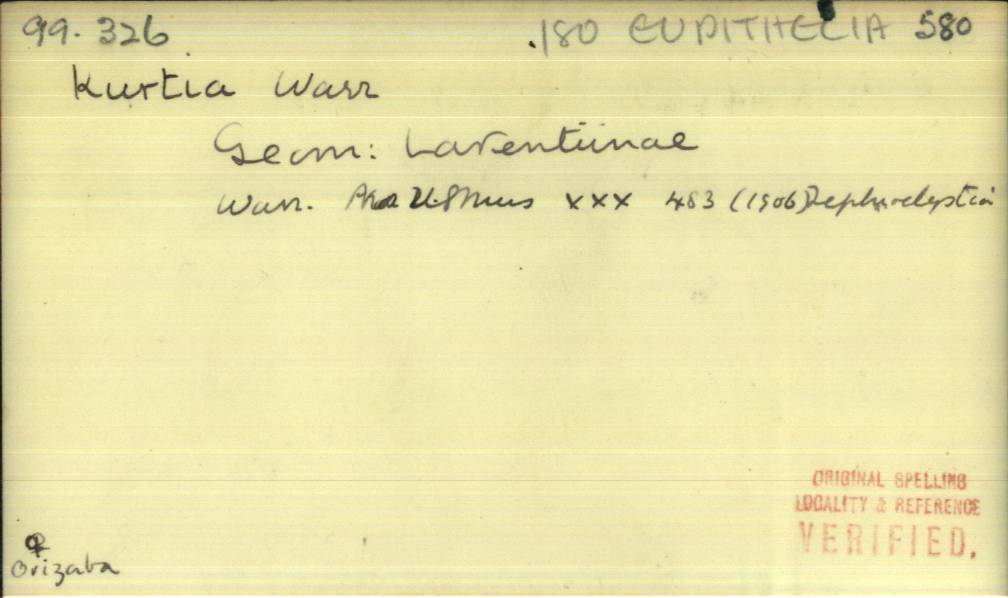 99. 326 .180 EUPITHECIA 580
Kurtia Warr
Geom: Larentiinae
Warr. Proc U.S Mus xxx 483 (1906) Tephroclystia
♀
Orizaba
ORIGINAL SPELLING
LOCALITY & REFERENCE
VERIFIED.